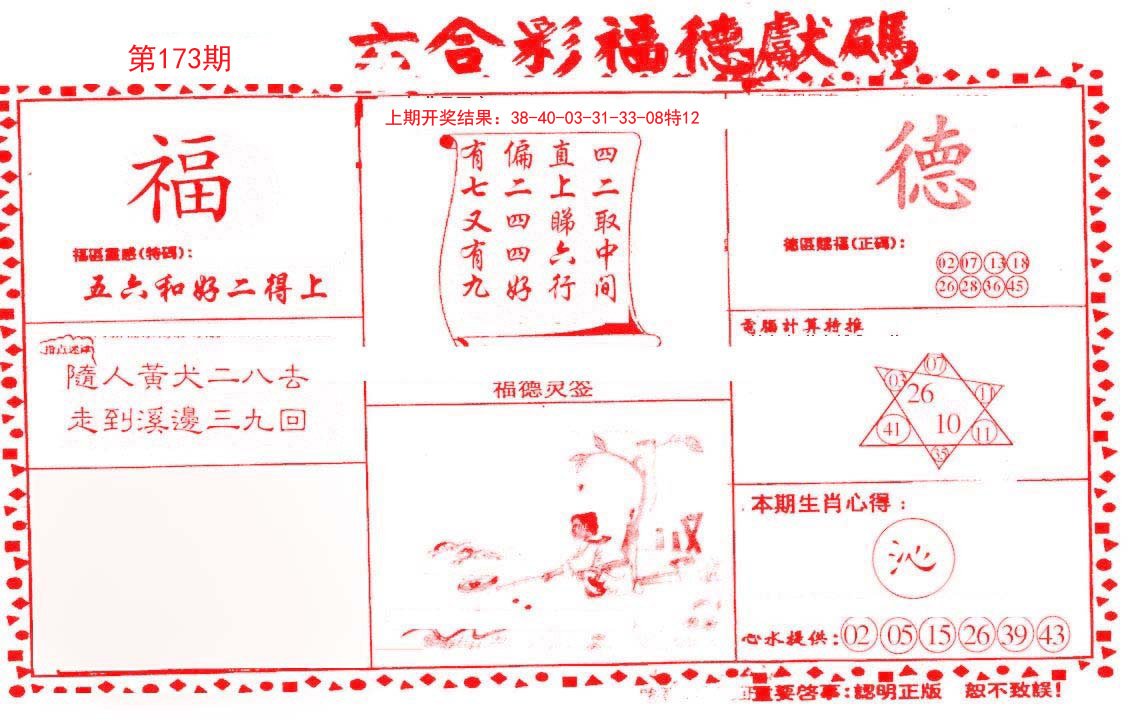 六合彩福德獻碼
第173期
福
福區靈感(特碼):
五六和好二得上
隨人黃犬二八去
走到溪邊三九回
上期开奖结果：38-40-03-31-33-08特12
四二取中间
直上睇六行
偏二四四好
有七又有九
福德灵签
德
德區賜福(正碼):
02 07 13 18
26 28 36 45
電腦計算特推
07
03 26 11
41 10 11
35
本期生肖心得：
沁
心水提供: 02 05 15 26 39 43
重要啓事:認明正版 恕不致誤!